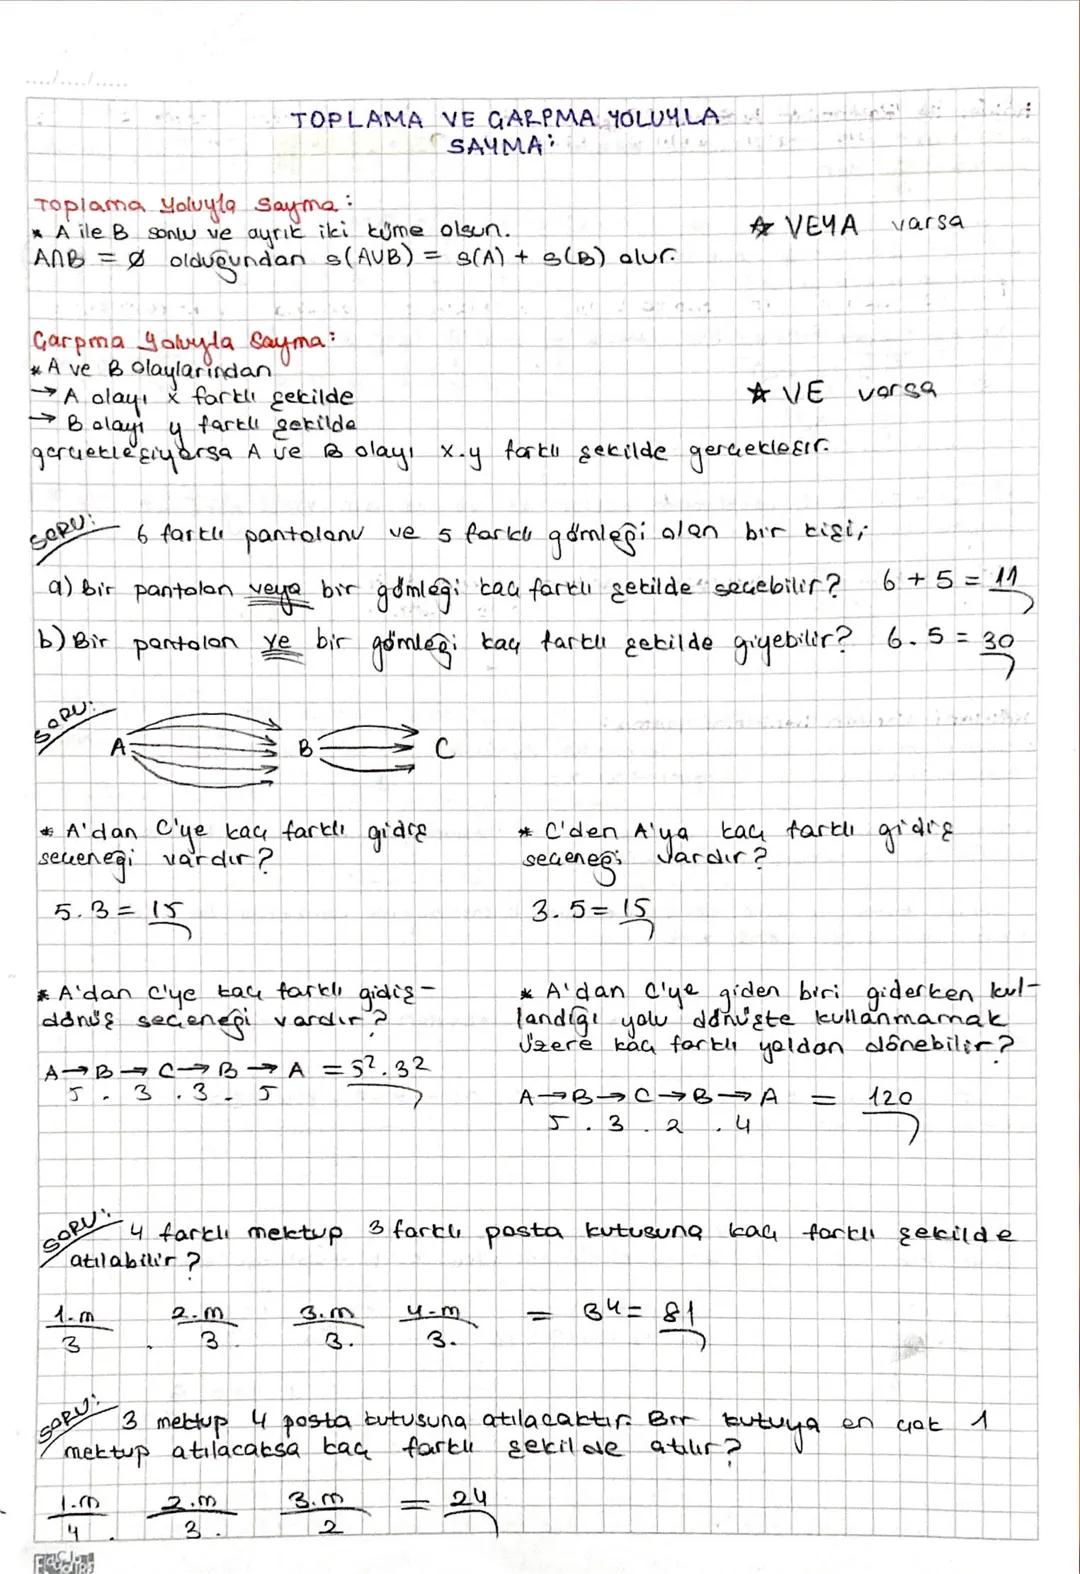 TOPLAMA VE ÇARPMA YOLUYLA
SAYMA:
Toplama Yoluyla Sayma:
* A ile B sonlu ve ayrık iki küme olsun.
☆ VEYA varsa
A∩B = Ø olduğundan s(A∪B) = s(A) + s(B) olur.
Çarpma Yoluyla Sayma:
* A ve B olaylarından
→ A olayı x farklı şekilde
☆ VE varsa
→ B olayı y farklı şekilde
gerçekleşiyorsa A ve B olayı x.y farklı şekilde gerçekleşir.
SORU: 6 farklı pantolonu ve 5 farklı gömleği olan bir kişi;
a) Bir pantolon veya bir gömleği kaç farklı şekilde seçebilir? 6 + 5 = 11
b) Bir pantolon ve bir gömleği kaç farklı şekilde giyebilir? 6.5 = 30
SORU:
A B C
* A'dan C'ye kaç farklı gidiş
seçeneği vardır?
5.3 = 15
* C'den A'ya kaç farklı gidiş
seçeneği vardır?
3.5 = 15
* A'dan C'ye kaç farklı gidiş-
dönüş seçeneği vardır?
A → B → C → B → A = 5².3²
5 . 3 . 3 . 5
* A'dan C'ye giden biri giderken kul-
landığı yolu dönüşte kullanmamak
üzere kaç farklı yoldan dönebilir?
A → B → C → B → A = 120
5 . 3 . 2 . 4
SORU: 4 farklı mektup 3 farklı posta kutusuna kaç farklı şekilde
atılabilir?
1.m 2.m 3.m 4.m = 3⁴ = 81
3 . 3 . 3 . 3.
SORU: 3 mektup 4 posta kutusuna atılacaktır. Bir kutuya en çok 1
mektup atılacaksa kaç farklı şekilde atılır?
1.m 2.m 3.m = 24
4 . 3 . 2